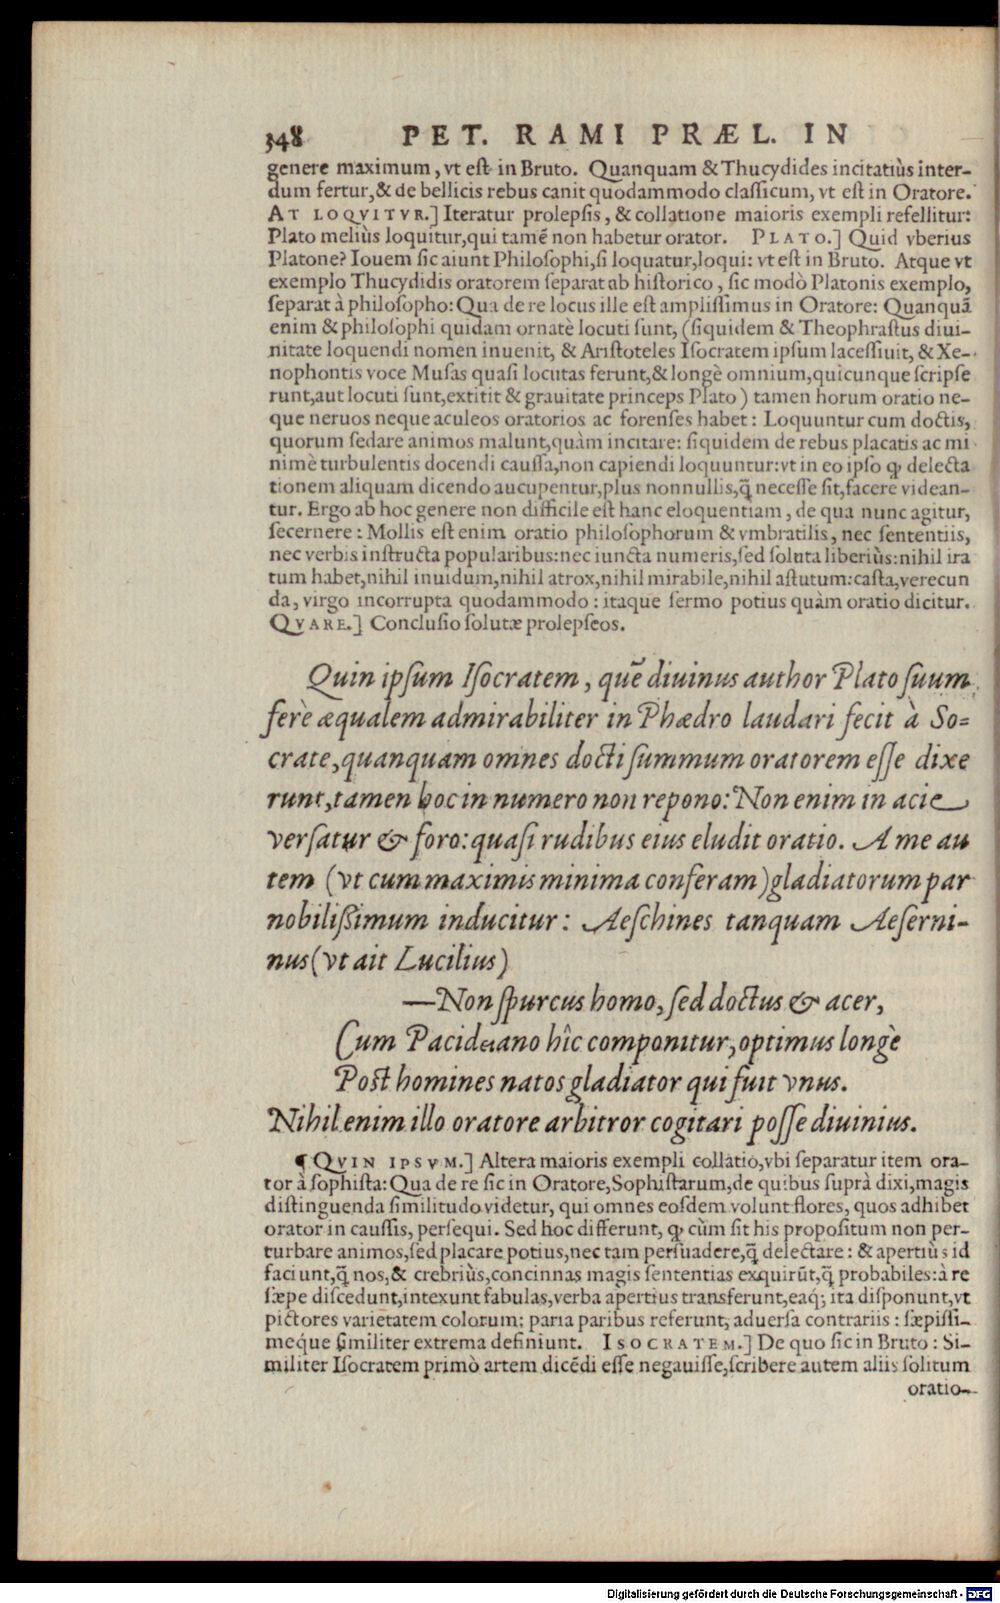 348 PET. RAMI PRÆL. IN
genere maximum, vt est in Bruto. Quanquam & Thucydides incitatiùs inter-
dum fertur, & de bellicis rebus canit quodammodo classicum, vt est in Oratore.
AT LOQVITVR.] Iteratur prolepsis, & collatione maioris exempli refellitur:
Plato meliùs loquitur, qui tamẽ non habetur orator. PLATO.] Quid vberius
Platone? Iouem sic aiunt Philosophi, si loquatur, loqui: vt est in Bruto. Atque vt
exemplo Thucydidis oratorem separat ab historico, sic modò Platonis exemplo,
separat à philosopho: Qua de re locus ille est amplissimus in Oratore: Quanquã
enim & philosophi quidam ornatè locuti sunt, (siquidem & Theophrastus diui-
nitate loquendi nomen inuenit, & Aristoteles Isocratem ipsum lacessiuit, & Xe-
nophontis voce Musas quasi locutas ferunt, & longè omnium, quicunque scripse
runt, aut locuti sunt, extitit & grauitate princeps Plato) tamen horum oratio ne-
que neruos neque aculeos oratorios ac forenses habet: Loquuntur cum doctis,
quorum sedare animos malunt, quàm incitare: siquidem de rebus placatis ac mi
nimè turbulentis docendi caussa, non capiendi loquuntur: vt in eo ipso ꝙ delecta
tionem aliquam dicendo aucupentur, plus nonnullis, q̃ necesse sit, facere videan-
tur. Ergo ab hoc genere non difficile est hanc eloquentiam, de qua nunc agitur,
secernere: Mollis est enim oratio philosophorum & vmbratilis, nec sententiis,
nec verbis instructa popularibus: nec iuncta numeris, sed soluta liberiùs: nihil ira
tum habet, nihil inuidum, nihil atrox, nihil mirabile, nihil astutum: casta, verecun
da, virgo incorrupta quodammodo: itaque sermo potius quàm oratio dicitur.
QVARE.] Conclusio solutæ prolepseos.
Quin ipsum Isocratem, quẽ diuinus author Plato suum
ferè æqualem admirabiliter in Phædro laudari fecit à So=
crate, quanquam omnes docti summum oratorem esse dixe
runt, tamen hoc in numero non repono: Non enim in acie
versatur & foro: quasi rudibus eius eludit oratio. A me au
tem (vt cum maximis minima conferam) gladiatorum par
nobilissimum inducitur: Aeschines tanquam Aeserni-
nus (vt ait Lucilius)
—Non spurcus homo, sed doctus & acer,
Cum Pacideiano hîc componitur, optimus longè
Post homines natos gladiator qui fuit vnus.
Nihil enim illo oratore arbitror cogitari posse diuinius.
¶ QVIN IPSVM.] Altera maioris exempli collatio, vbi separatur item ora-
tor à sophista: Qua de re sic in Oratore, Sophistarum, de quibus suprà dixi, magis
distinguenda similitudo videtur, qui omnes eosdem volunt flores, quos adhibet
orator in caussis, persequi. Sed hoc differunt, ꝙ cùm sit his propositum non per-
turbare animos, sed placare potius, nec tam persuadere, q̃ delectare: & apertiùs id
faciunt, q̃ nos, & crebriùs, concinnas magis sententias exquirũt, q̃ probabiles: à re
sæpe discedunt, intexunt fabulas, verba apertius transferunt, eaq́; ita disponunt, vt
pictores varietatem colorum; paria paribus referunt, aduersa contrariis: sæpissi-
meque similiter extrema definiunt. ISOCRATEM.] De quo sic in Bruto: Si-
militer Isocratem primò artem dicẽdi esse negauisse, scribere autem aliis solitum
oratio-
Digitalisierung gefördert durch die Deutsche Forschungsgemeinschaft - DFG